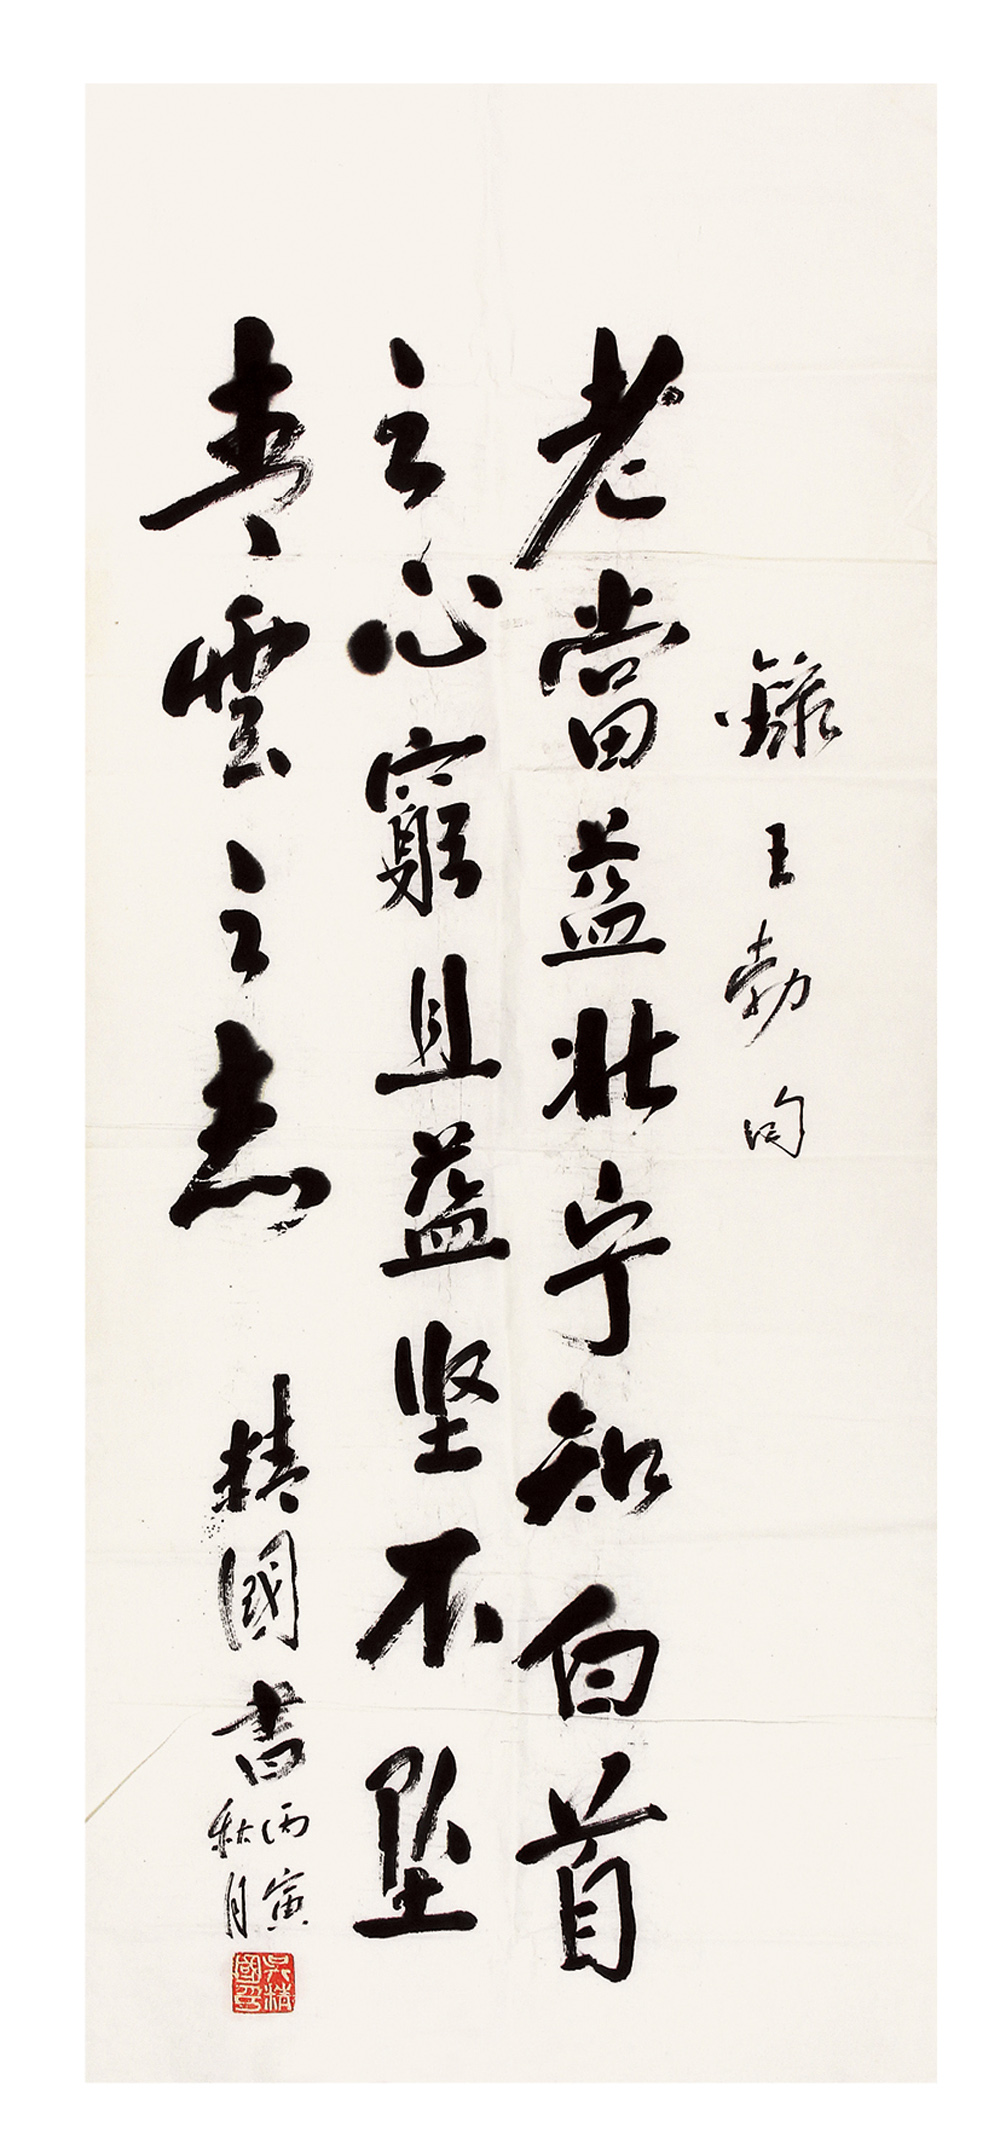 錄王勃句
老當益壯宁知白首
之心窮且益坚不坠
青雲之志
精國書
丙寅
秋月
吴精
國印